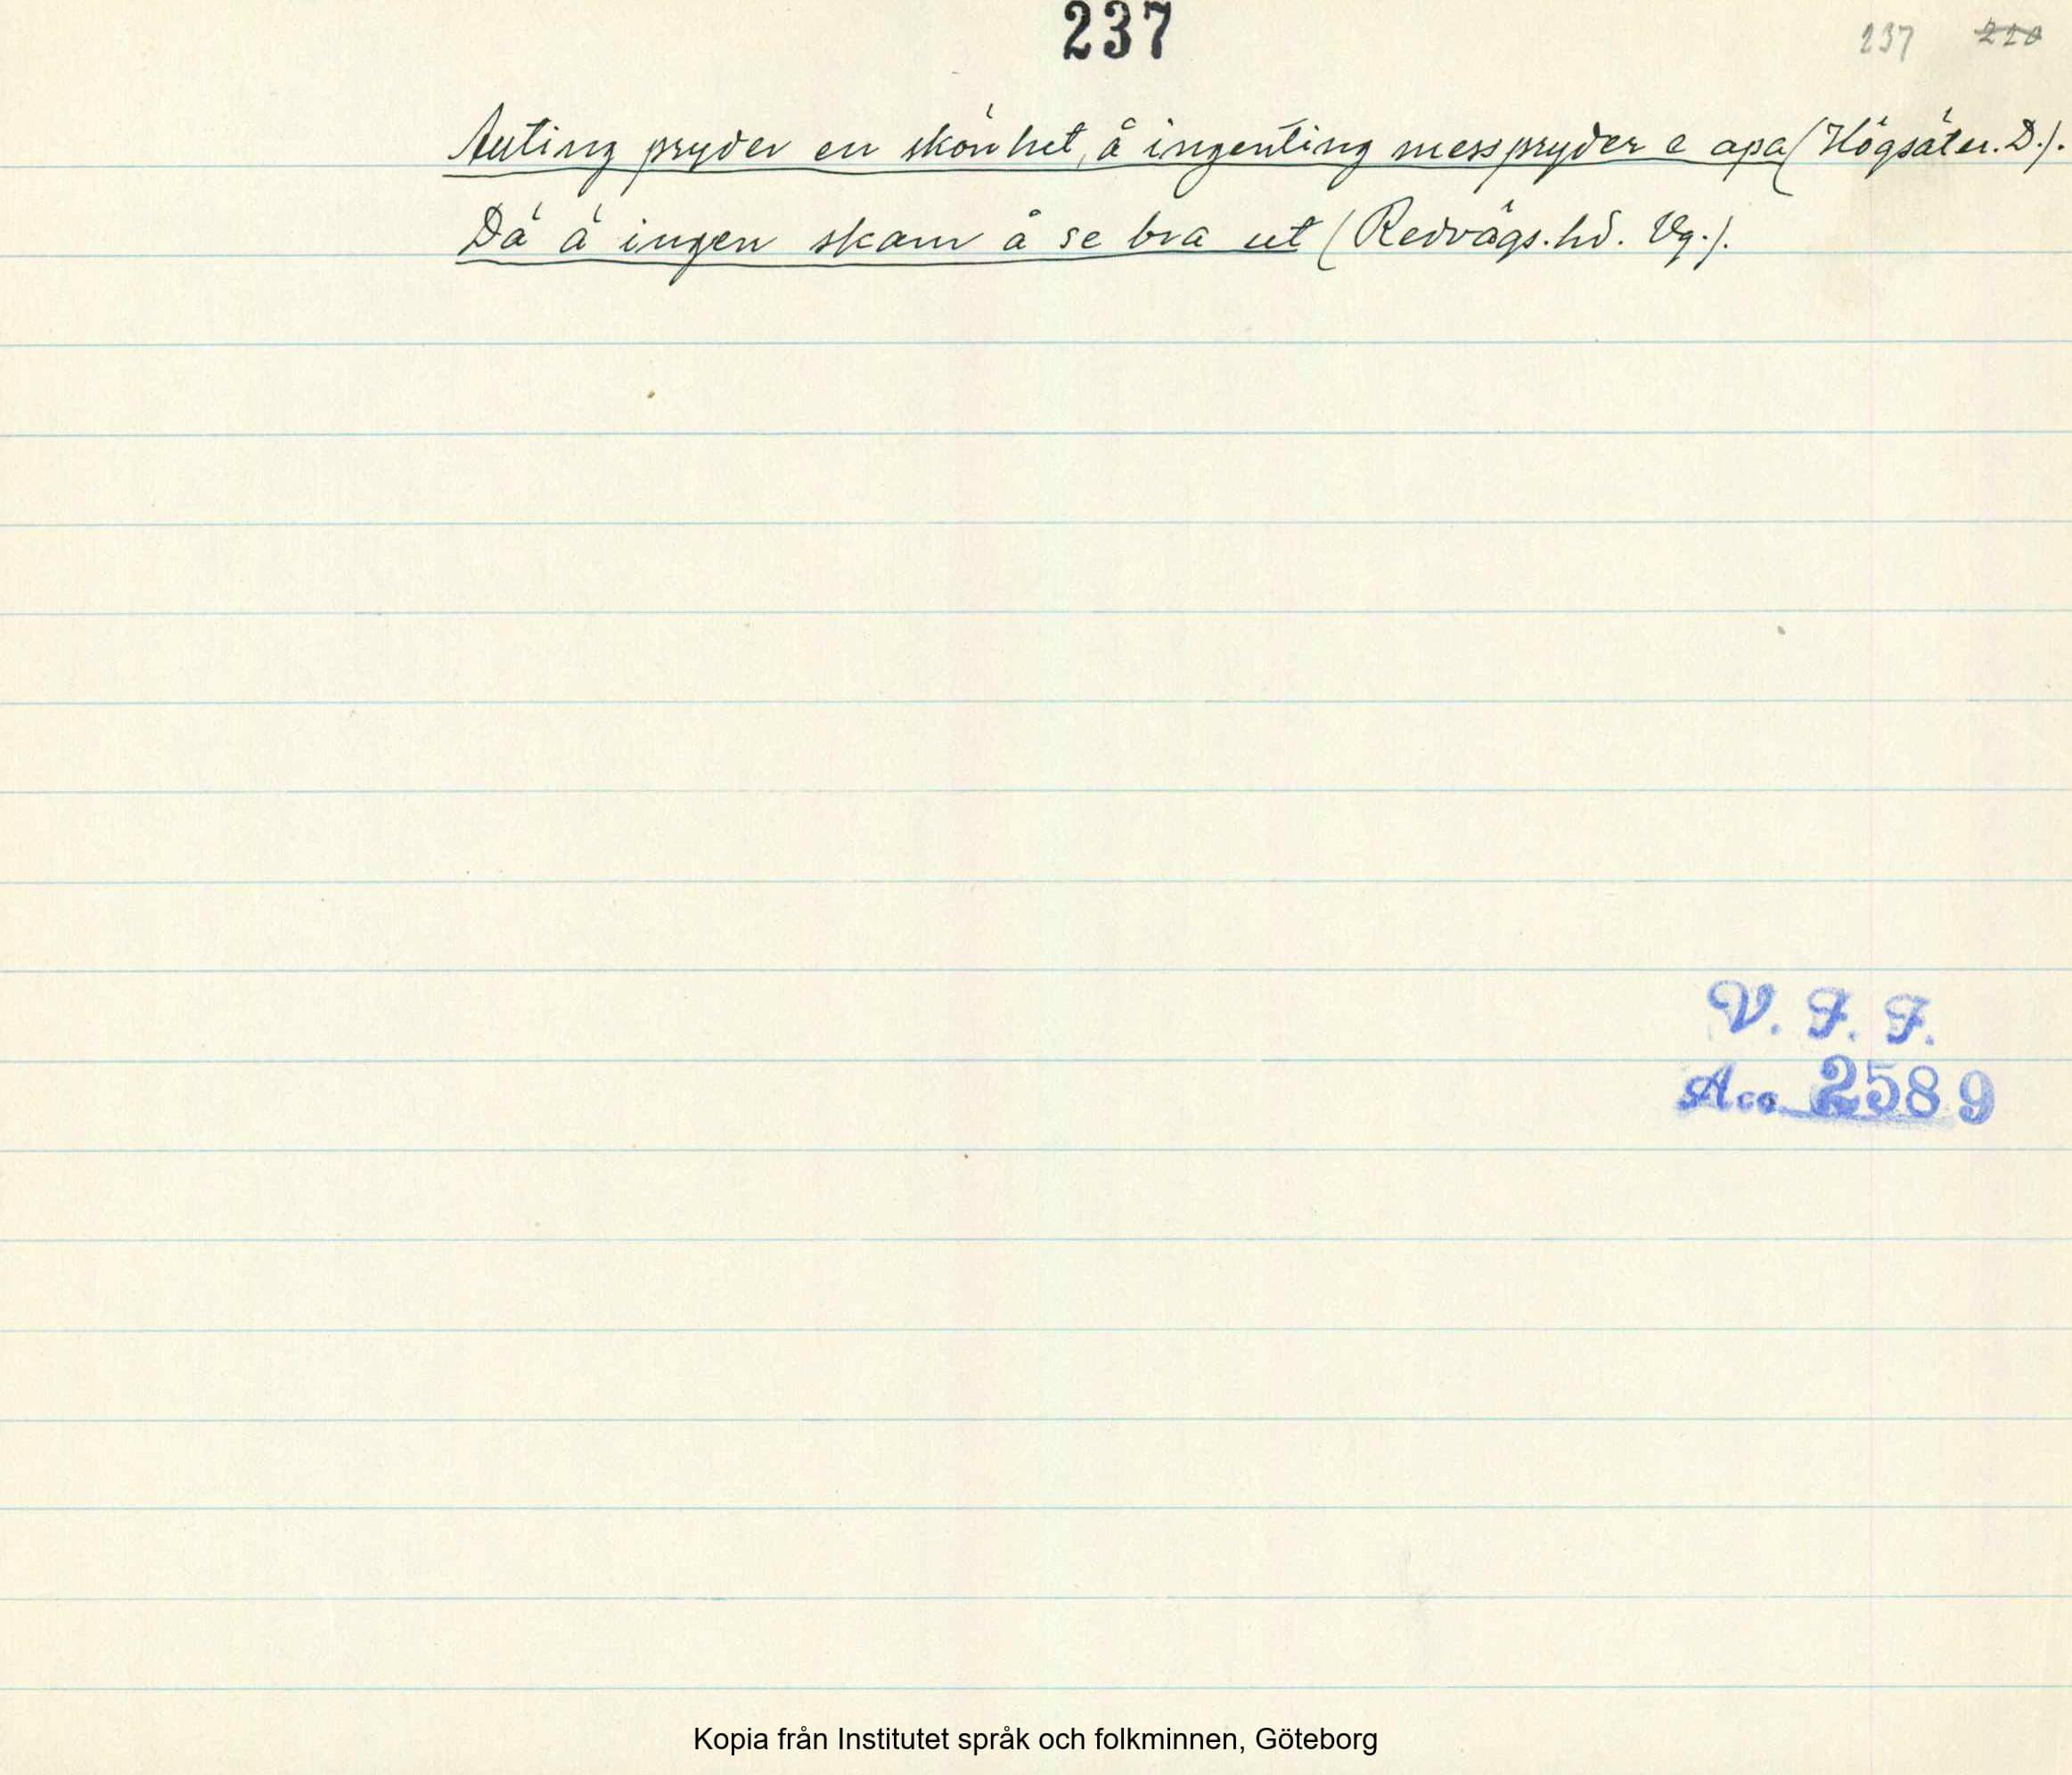 237
237 220
Auting pryder en skönhet, å ingenting messpryder e apa (Högsäter. D.).
Dä ä ingen skam å se bra ut (Redvägs. hd. Vg.).
V. F. F.
Acc. 2589
Kopia från Institutet språk och folkminnen, Göteborg